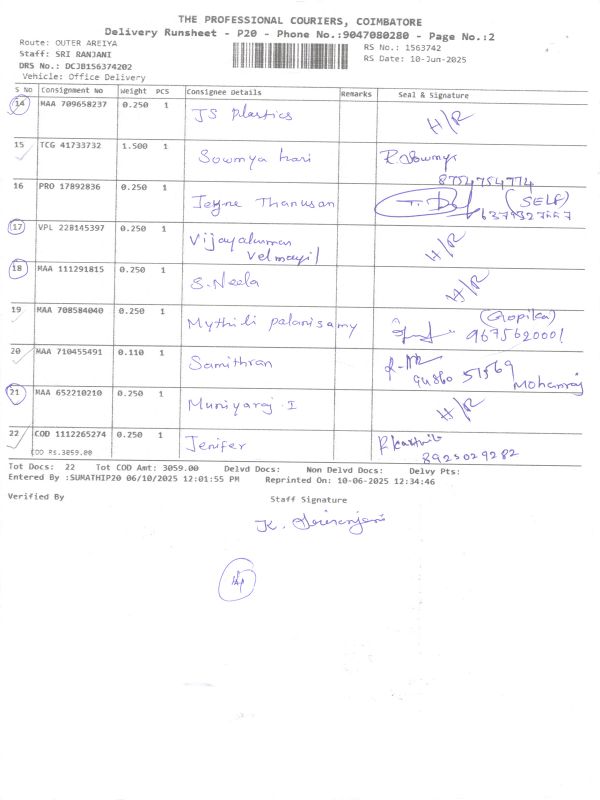 THE PROFESSIONAL COURIERS, COIMBATORE
Delivery Runsheet - P20 - Phone No.:9047080280 - Page No.:2
Route: OUTER AREIYA
RS No.: 1563742
Staff: SRI RANJANI
RS Date: 10-Jun-2025
DRS No.: DCJB156374202
Vehicle: Office Delivery
S No Consignment No Weight PCS Consignee Details Remarks Seal & Signature
14 MAA 709658237 0.250 1 JS Plastics H/R
15 TCG 41733732 1.500 1 Sowmya hari R. Sowmya
8754754774
16 PRO 17892836 0.250 1 Jeyne Thanusan (SELF)
17 VPL 228145397 0.250 1 Vijayakumar H/R
Velmayil
18 MAA 111291815 0.250 1 S. Neela H/R
19 MAA 708584040 0.250 1 Mythili palanisamy (Gopika)
9675620001
20 MAA 710455491 0.110 1 Samithran
94860 51569 Mohanraj
21 MAA 652210210 0.250 1 Muniyaraj. I H/R
22 COD 1112265274 0.250 1 Jenifer
COD Rs.3059.00
8925029282
Tot Docs: 22 Tot COD Amt: 3059.00 Delvd Docs: Non Delvd Docs: Delvy Pts:
Entered By :SUMATHIP20 06/10/2025 12:01:55 PM Reprinted On: 10-06-2025 12:34:46
Verified By
Staff Signature